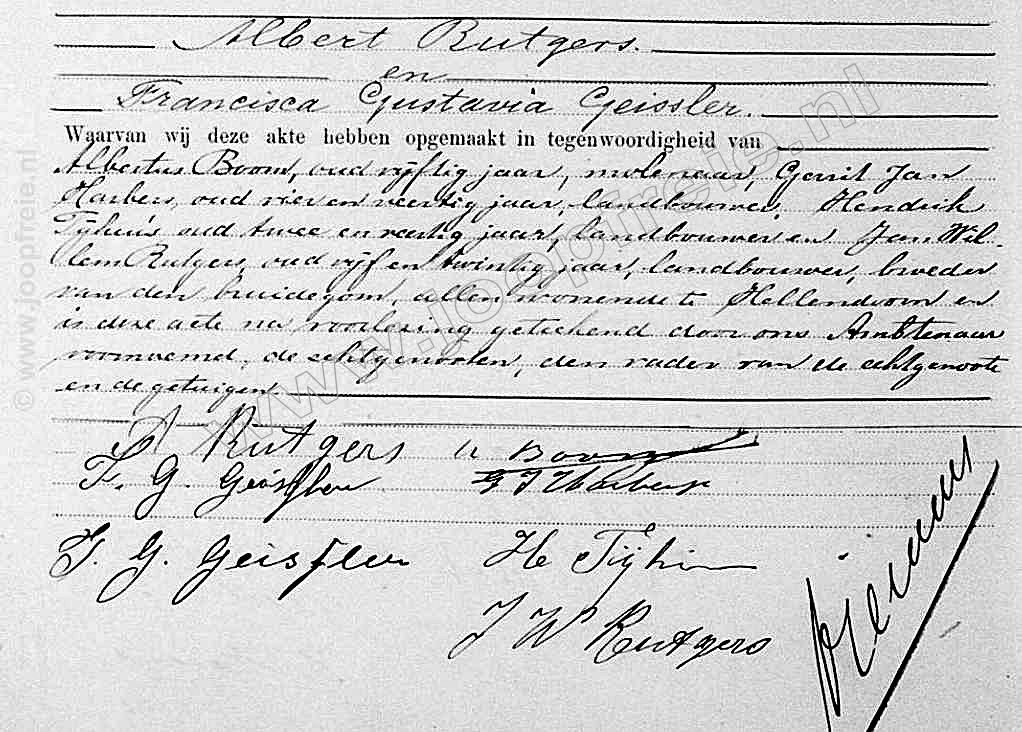 Albert Rutgers.
en
Francisca Gustavia Geissler.
Waarvan wij deze akte hebben opgemaakt in tegenwoordigheid van
Albertus Boom, oud vijftig jaar, molenaar, Gerrit Jan
Harbers, oud vier en veertig jaar, landbouwer, Hendrik
oud twee en veertig jaar, landbouwer en Jan Wil-
lem Rutgers, oud vijf en twintig jaar, landbouwer, broeder
van den bruidegom, allen wonende te Hellendoorn en
is deze acte na voorlezing geteekend door ons Ambtenaar
voornoemd, de echtgenooten, den vader van de echtgenoote
en de getuigen
A Rutgers
Boom
F. G. Geissler
G J Harbers
G. Geissler
H
J W Rutgers
www.joopfreie.nl
© www.joopfreie.nl